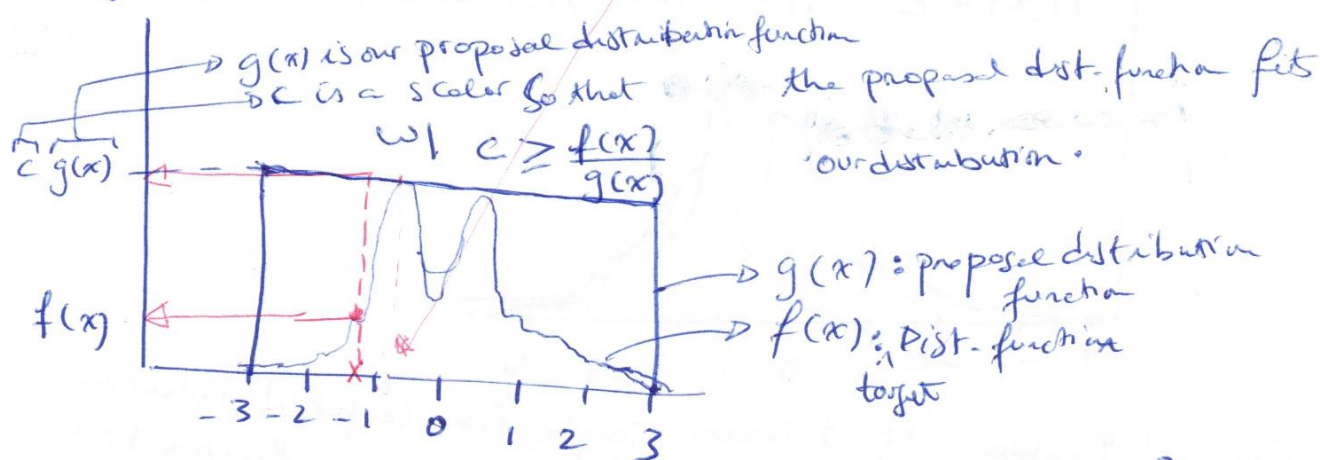 g(x) is our proposal distribution function
c is a scalar so that the proposal dist. function fits
c g(x)
w/ c ≥ f(x)/g(x) our distribution.
g(x): proposal distribution
function
f(x)
f(x): Dist- function
target
-3 -2 -1 0 1 2 3
x